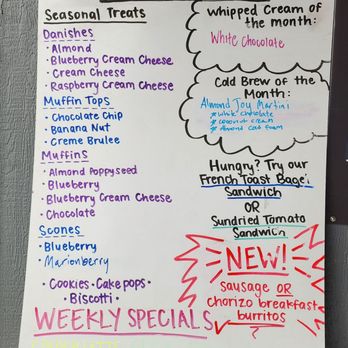 Seasonal Treats
Danishes
• Almond
• Blueberry Cream Cheese
• Cream Cheese
• Raspberry Cream Cheese
Muffin Tops
• Chocolate Chip
• Banana Nut
• Creme Brulee
Muffins
• Almond Poppyseed
• Blueberry
• Blueberry Cream Cheese
• Chocolate
Scones
• Blueberry
• Marionberry
• Cookies • Cake pops •
Biscotti •
Whipped Cream of
the month:
White Chocolate
Cold Brew of the
Month:
Almond Joy Martini
* White chocolate
* coconut cream
* Almond Cold Foam
Hungry? Try our
French Toast Bagel
Sandwich
OR
Sundried Tomato
Sandwich
NEW!
sausage OR
chorizo breakfast
burritos
WEEKLY SPECIALS